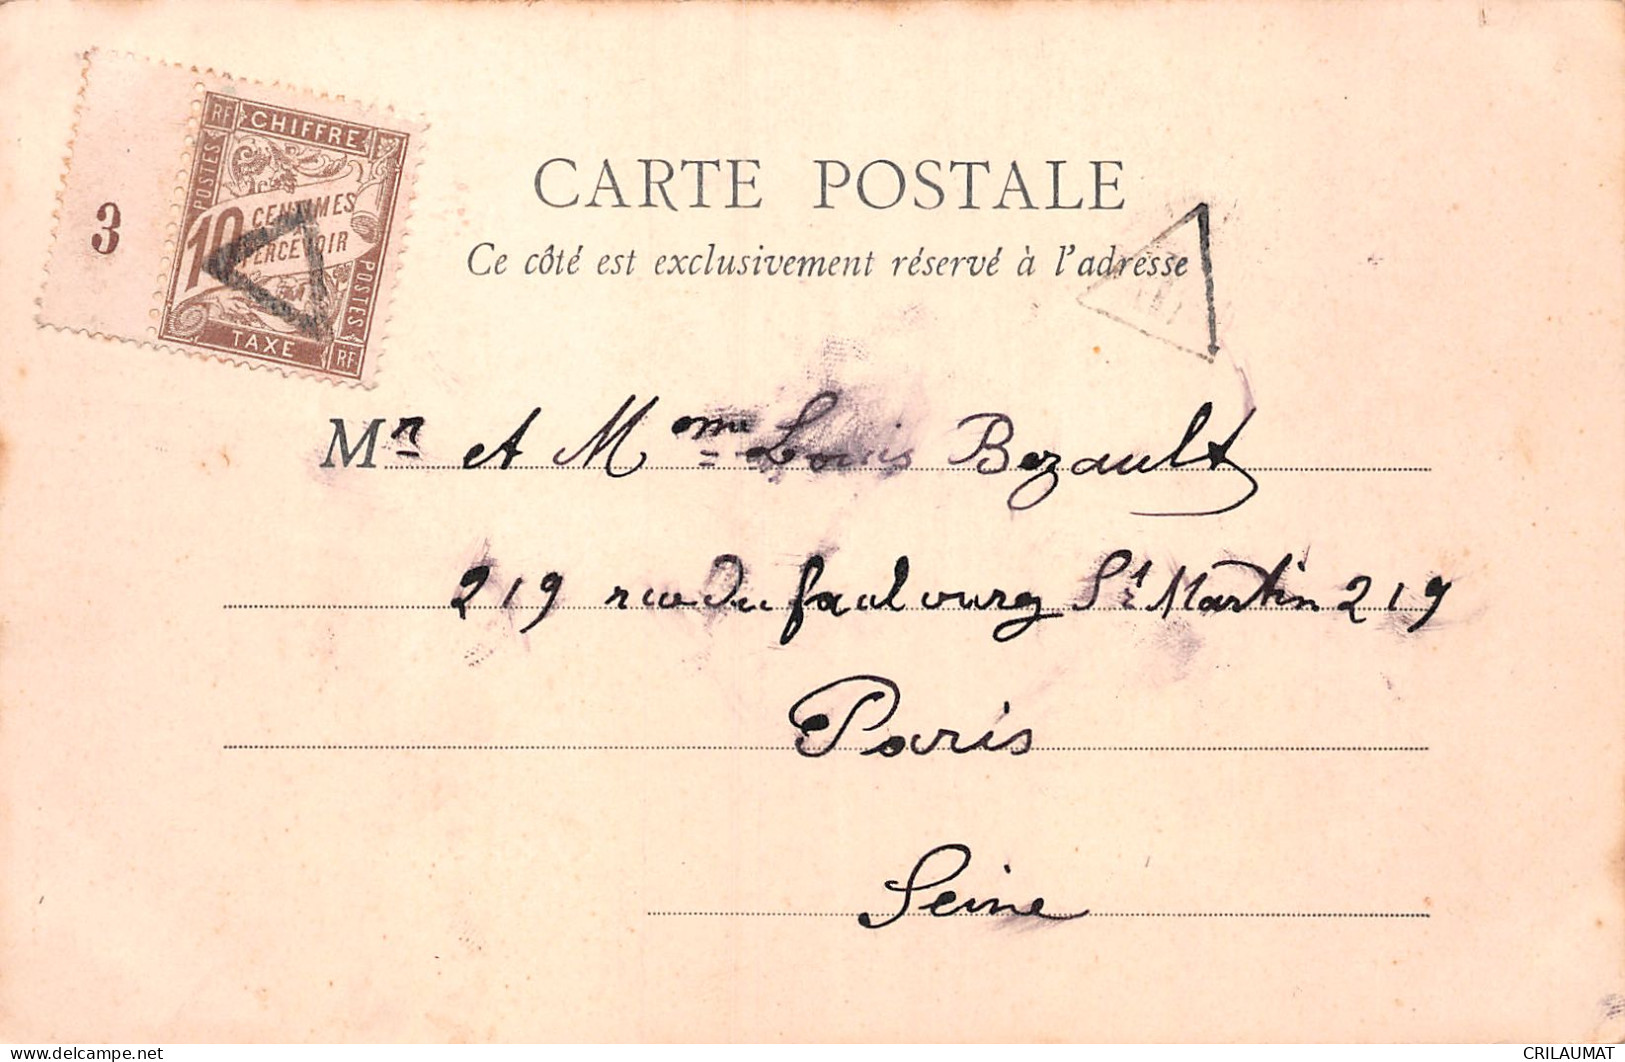 3
RF CHIFFRE
POSTES
10 CENTIMES
PERCEVOIR
POSTES
TAXE RF
CARTE POSTALE
Ce côté est exclusivement réservé à l'adresse
Mr et Mme Louis Bezault
219 rue du faubourg St Martin 219
Paris
Seine
delcampe.net
CRILAUMAT